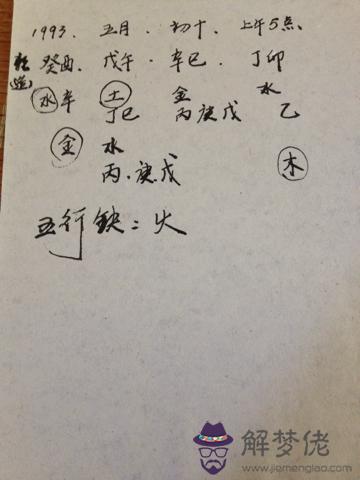 1993. 五月. 初十. 上午5点
乾造 癸酉. 戊午. 辛巳. 丁卯
水 辛 土 金 水
丁巳 丙庚戊 乙
金 水 木
丙.庚戊
五行缺:火
解梦佬
www.jiemenglao.com